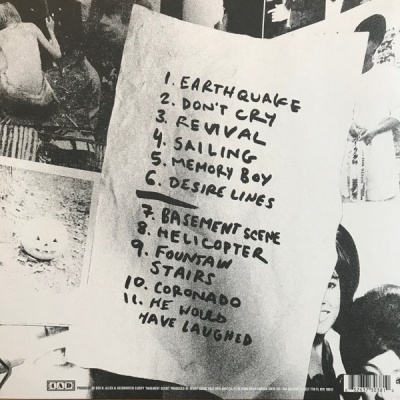 1. EARTHQUAKE
2. DON'T CRY
3. REVIVAL
4. SAILING
5. MEMORY BOY
6. DESIRE LINES
7. BASEMENT SCENE
8. HELICOPTER
9. FOUNTAIN
STAIRS
10. CORONADO
11. HE WOULD
HAVE LAUGHED
4AD